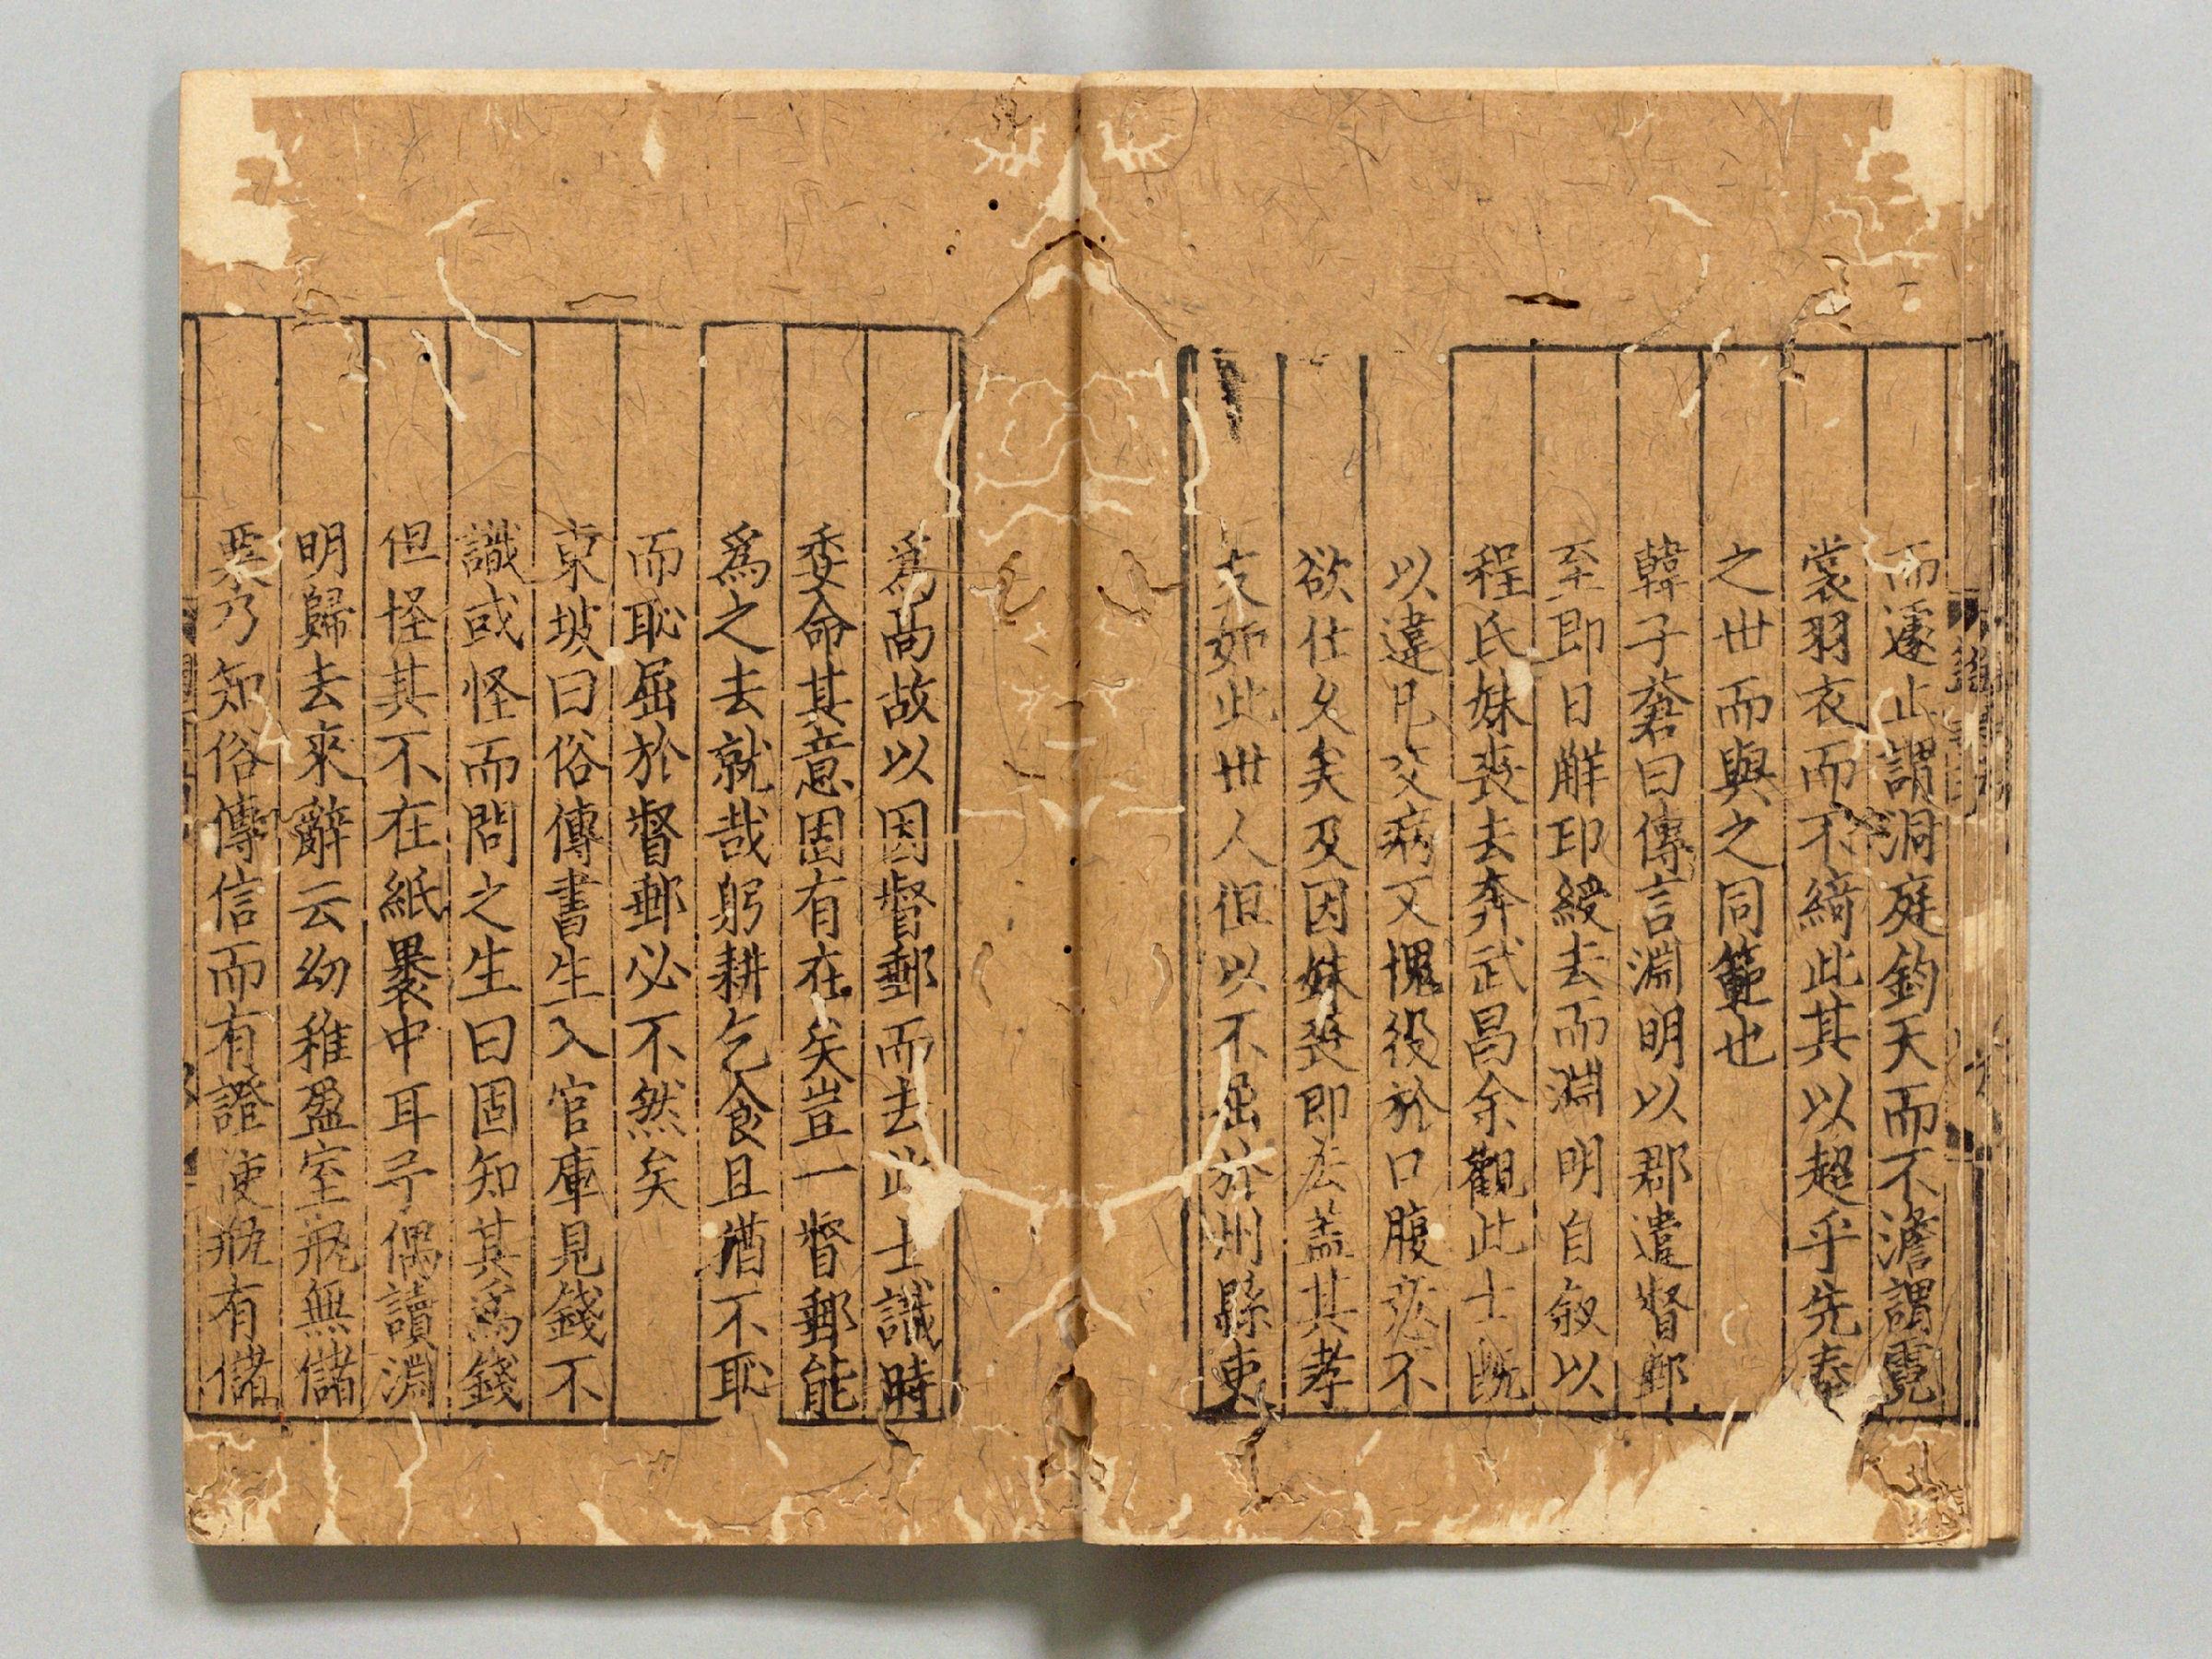 而遽止謂洞庭鈞天而不澹謂霓
裳羽衣而不綺此其以超乎先秦
之世而與之同範也
韓子蒼曰傳言淵明以郡遣督郵
至即日解印綬去而淵明自敘以
程氏妹喪去奔武昌余觀此士既
以違己交病又愧役於口腹意不
欲仕久矣及因妹喪即去蓋其孝
友如此世人但以不屈於州縣吏
爲高故以因督郵而去此士識時
委命其意固有在矣豈一督郵能
爲之去就哉躬耕乞食且猶不恥
而恥屈於督郵必不然矣
東坡曰俗傳書生入官庫見錢不
識或怪而問之生曰固知其爲錢
但怪其不在紙裹中耳予偶讀淵
明歸去來辭云幼稚盈室瓶無儲
粟乃知俗傳信而有證使瓶有儲